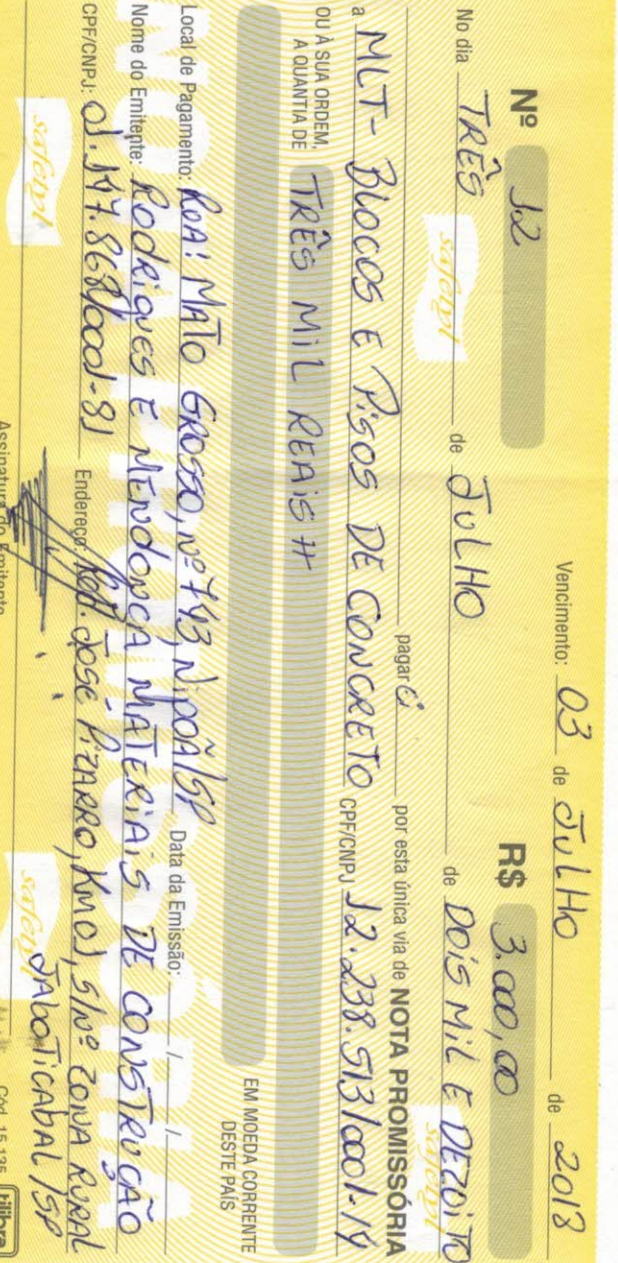 Vencimento: 03 de JULHO de 2018
Nº 12 R$ 3.000,00
No dia TRÊS de JULHO de DOIS MIL E DEZOITO
pagarei por esta única via de NOTA PROMISSÓRIA
a MLT - BLOCOS E PISOS DE CONCRETO CPF/CNPJ 12.238.513/0001-14
OU À SUA ORDEM,
A QUANTIA DE TRÊS MIL REAIS #
EM MOEDA CORRENTE
DESTE PAÍS
Local de Pagamento: RUA: MATO GROSSO, nº 743, NIPOÃ/SP Data da Emissão: / /
Nome do Emitente: RODRIGUES E MENDONÇA MATERIAIS DE CONSTRUÇÃO
CPF/CNPJ: 01.147.868/0001-81 Endereço: Rod. JOSÉ PIZARRO, Km 01, S/Nº ZONA RURAL
JABOTICABAL/SP
Assinatura do Emitente
Cód. 15.135 tilibra
safety
safety
safety
safety